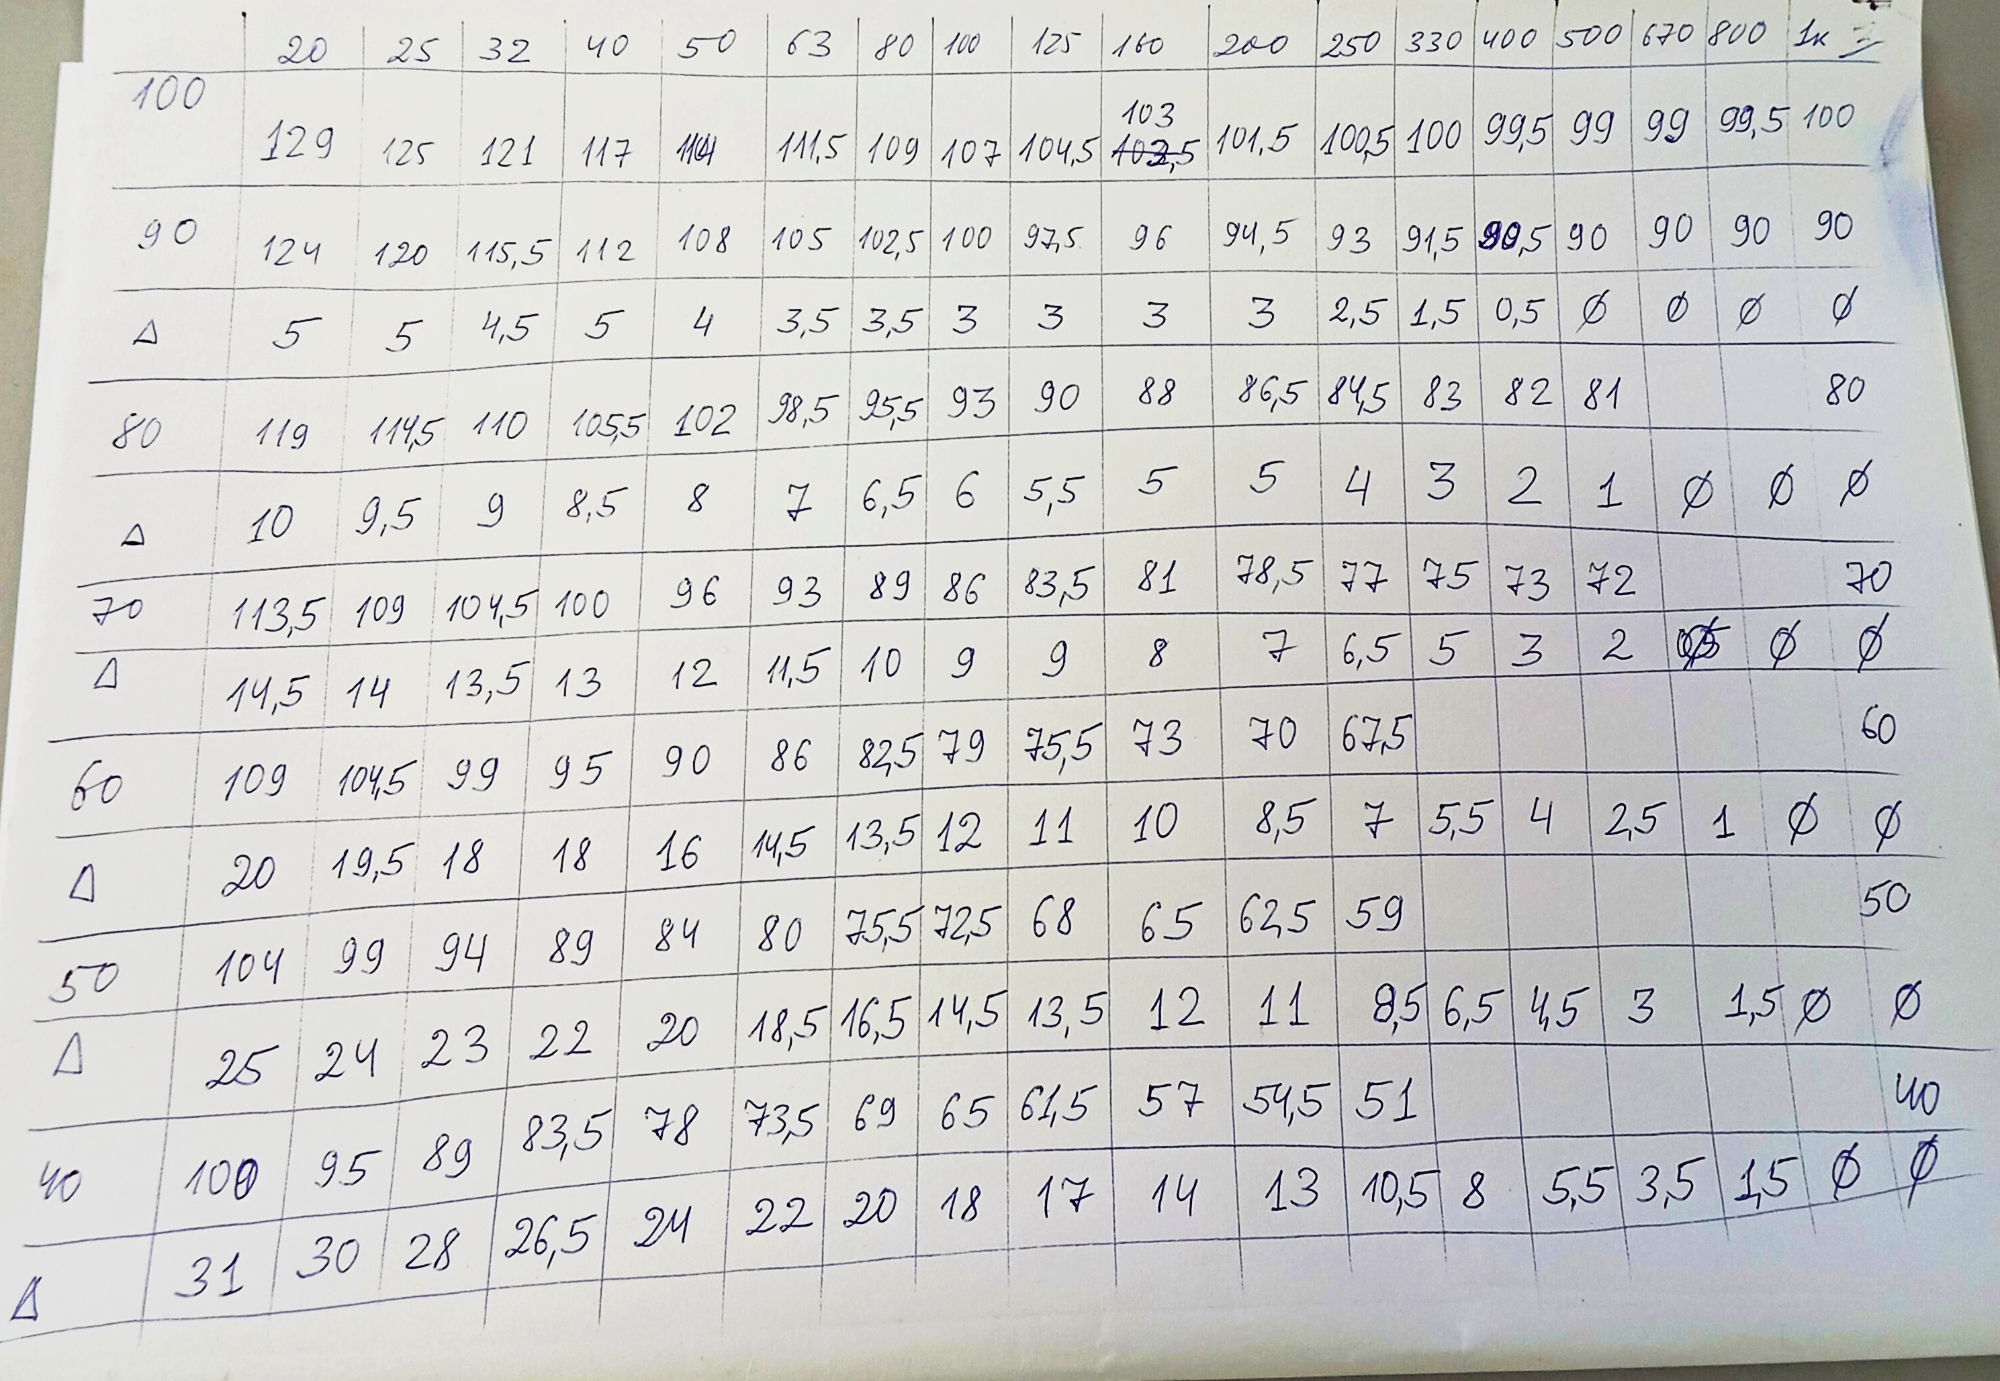 20 25 32 40 50 63 80 100 125 160 200 250 330 400 500 670 800 1к
100 129 125 121 117 114 111,5 109 107 104,5 103 101,5 100,5 100 99,5 99 99 99,5 100
90 124 120 115,5 112 108 105 102,5 100 97,5 96 94,5 93 91,5 90,5 90 90 90 90
Δ 5 5 4,5 5 4 3,5 3,5 3 3 3 3 2,5 1,5 0,5 ∅ ∅ ∅ ∅
80 119 114,5 110 105,5 102 98,5 95,5 93 90 88 86,5 84,5 83 82 81 80
Δ 10 9,5 9 8,5 8 7 6,5 6 5,5 5 5 4 3 2 1 ∅ ∅ ∅
70 113,5 109 104,5 100 96 93 89 86 83,5 81 78,5 77 75 73 72 70
Δ 14,5 14 13,5 13 12 11,5 10 9 9 8 7 6,5 5 3 2 ∅ ∅
60 109 104,5 99 95 90 86 82,5 79 75,5 73 70 67,5 60
Δ 20 19,5 18 18 16 14,5 13,5 12 11 10 8,5 7 5,5 4 2,5 1 ∅ ∅
50 104 99 94 89 84 80 75,5 72,5 68 65 62,5 59 50
Δ 25 24 23 22 20 18,5 16,5 14,5 13,5 12 11 6,5 4,5 3 1,5 ∅ ∅
40 100 95 89 83,5 78 73,5 69 65 61,5 57 54,5 51 40
Δ 31 30 28 26,5 24 22 20 18 17 14 13 10,5 8 5,5 3,5 1,5 ∅ ∅